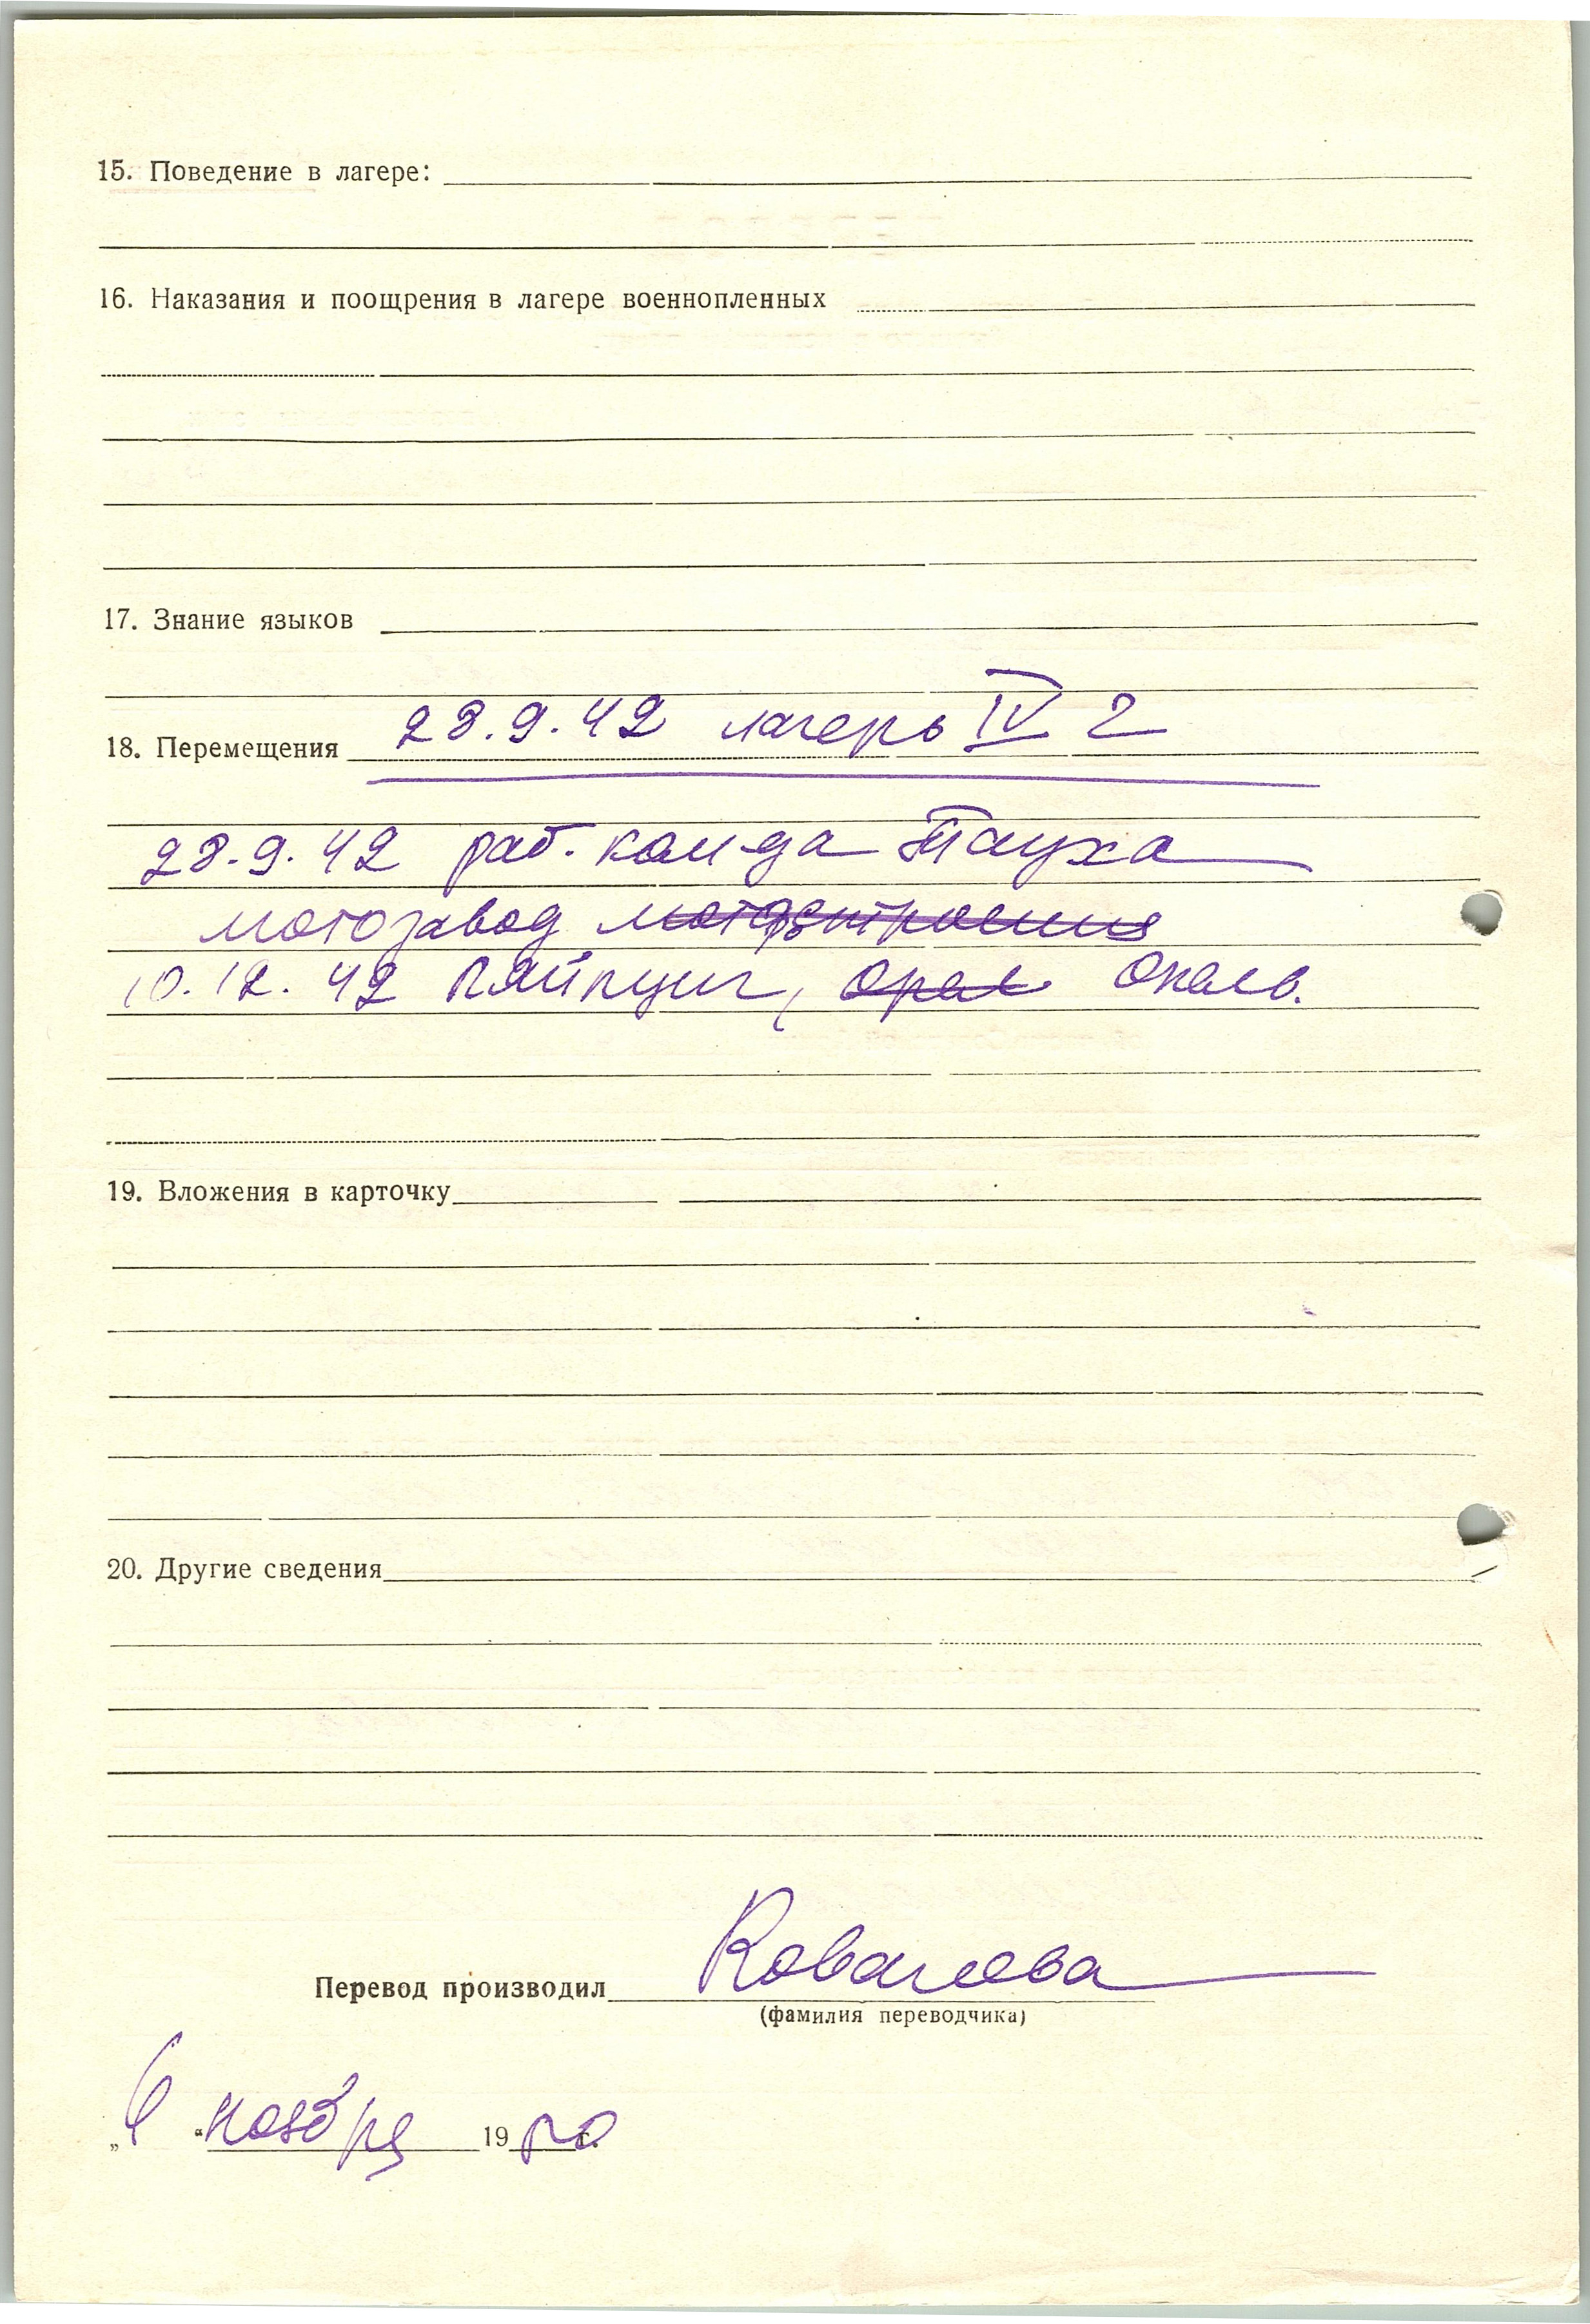 15. Поведение в лагере:
16. Наказания и поощрения в лагере военнопленных
17. Знание языков
28.9.42 лагерь IV Г
18. Перемещения
28.9.42 раб. кам-да Тауха
мотозавод
10.12.42 Ляйпциг,
19. Вложения в карточку
20. Другие сведения
Перевод производил Ковалева
(фамилия переводчика)
„6“ ноября 1950 г.